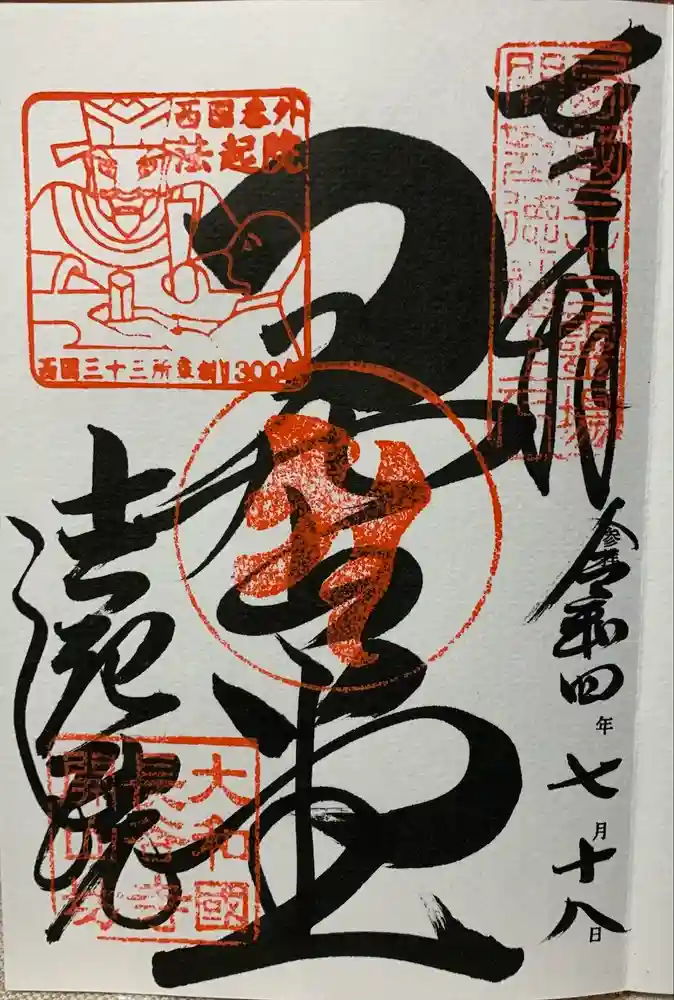 奉拝
西國三十三霊場
開基徳道上人
参拝
令和四年七月十八日
開山堂
西国番外
法起院
西国三十三所草創1300年
法起院
大和國
長谷寺
開山坊